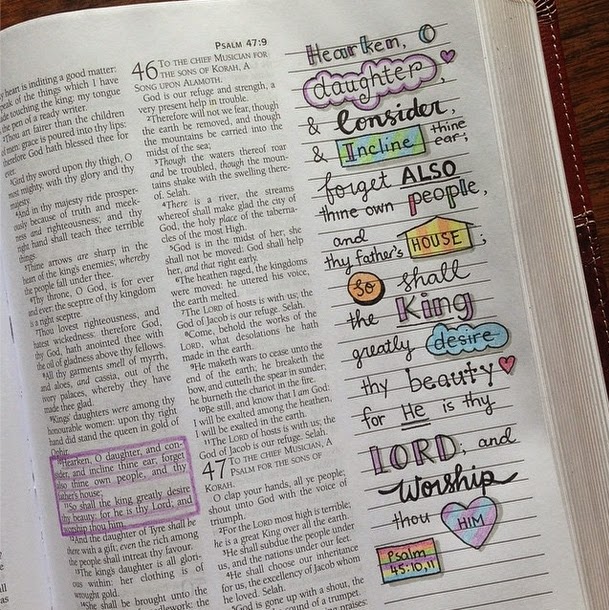 PSALM 47:9
heart is inditing a good matter:
peak of the things which I have
ade touching the king: my tongue
the pen of a ready writer.
Thou art fairer than the children
of men: grace is poured into thy lips:
therefore God hath blessed thee for
ever.
Gird thy sword upon thy thigh, O
most mighty, with thy glory and thy
majesty.
And in thy majesty ride prosper-
ously because of truth and meek-
ness and righteousness; and thy
right hand shall teach thee terrible
things.
5Thine arrows are sharp in the
heart of the king's enemies; whereby
the people fall under thee.
6Thy throne, O God, is for ever
and ever: the sceptre of thy kingdom
is a right sceptre.
7Thou lovest righteousness, and
hatest wickedness: therefore God,
thy God, hath anointed thee with
the oil of gladness above thy fellows.
8All thy garments smell of myrrh,
and aloes, and cassia, out of the
ivory palaces, whereby they have
made thee glad.
9Kings' daughters were among thy
honourable women: upon thy right
hand did stand the queen in gold of
Ophir.
10Hearken, O daughter, and con-
sider, and incline thine ear; forget
also thine own people, and thy
father's house;
11So shall the king greatly desire
thy beauty: for he is thy Lord; and
worship thou him.
12And the daughter of Tyre shall be
there with a gift; even the rich among
the people shall intreat thy favour.
13The king's daughter is all glori-
ous within: her clothing is of
wrought gold.
14She shall be brought unto the
46 TO THE CHIEF MUSICIAN FOR
THE SONS OF KORAH, A
SONG UPON ALAMOTH.
God is our refuge and strength, a
very present help in trouble.
2Therefore will not we fear, though
the earth be removed, and though
the mountains be carried into the
midst of the sea;
3Though the waters thereof roar
and be troubled, though the moun-
tains shake with the swelling there-
of. Selah.
4There is a river, the streams
whereof shall make glad the city of
God, the holy place of the taberna-
cles of the most High.
5God is in the midst of her; she
shall not be moved: God shall help
her, and that right early.
6The heathen raged, the kingdoms
were moved: he uttered his voice,
the earth melted.
7The LORD of hosts is with us; the
God of Jacob is our refuge. Selah.
8Come, behold the works of the
LORD, what desolations he hath
made in the earth.
9He maketh wars to cease unto the
end of the earth; he breaketh the
bow, and cutteth the spear in sunder;
he burneth the chariot in the fire.
10Be still, and know that I am God:
I will be exalted among the heathen,
I will be exalted in the earth.
11The LORD of hosts is with us; the
God of Jacob is our refuge. Selah.
47 TO THE CHIEF MUSICIAN, A
PSALM FOR THE SONS OF
KORAH.
O clap your hands, all ye people;
shout unto God with the voice of
triumph.
2For the LORD most high is terrible;
he is a great King over all the earth.
3He shall subdue the people under
us, and the nations under our feet.
4He shall choose our inheritance
for us, the excellency of Jacob whom
he loved. Selah.
5God is gone up with a shout, the
LORD with the sound of a trumpet.
Hearken, O
daughter,
& Consider,
& Incline thine ear;
forget ALSO
thine own people,
and
thy father's HOUSE;
so shall
the King
greatly desire
thy beauty
for He is thy
LORD; and
Worship
thou HIM
Psalm
45:10,11